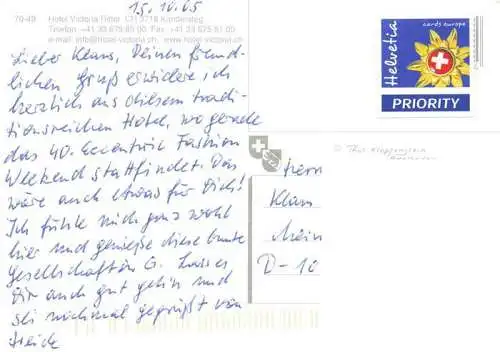 15.10.05
70-49 Hotel Victoria Ritter CH 3718 Kandersteg
Telefon +41 33 675 80 00 Fax +41 33 675 81 00
e-mail: info@hotel-victoria.ch www.hotel-victoria.ch
Lieber Klaus, Deinen freund-
lichen Gruß erwidere ich
herzlich aus diesem tradi-
tionsreichen Hotel, wo gerade
das 40. Eccentric Fashion
Weekend stattfindet. Das
wäre auch etwas für Dich!
Ich fühle mich ganz wohl
hier und genieße diese bunte
Gesellschaft in G. Lasses
Dir auch gut gehn und
sei nochmal gegrüßt von
Helvetia
cards europe
PRIORITY
Herrn
Klaus
D-10